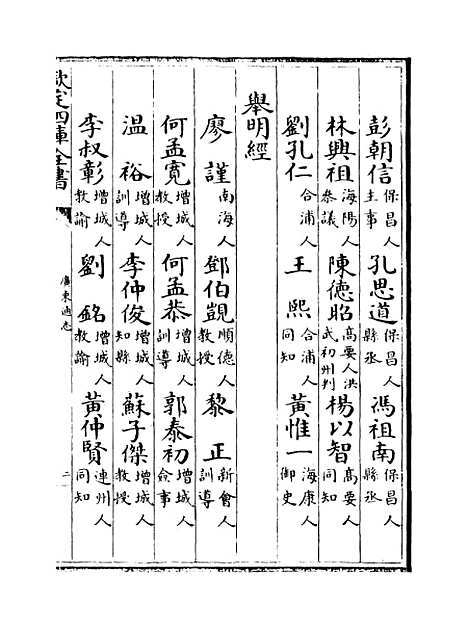 彭朝信保昌人主事 孔思道保昌人縣丞 馮祖南保昌人縣丞
林興祖海陽人叅議 陳德昭高要人洪武初州判 楊以智高要人同知
劉孔仁合浦人 王熙合浦人同知 黃惟一海康人御史
舉明經
廖謹南海人 鄧伯覬順德人教授 黎正新會人訓導
何孟寛增城人教授 何孟恭增城人訓導 郭泰初增城人僉事
温裕增城人訓導 李仲俊增城人知縣 蘇子傑增城人教授
李叔彰增城人教諭 劉銘增城人教諭 黃仲賢連州人同知
欽定四庫全書
廣東通志